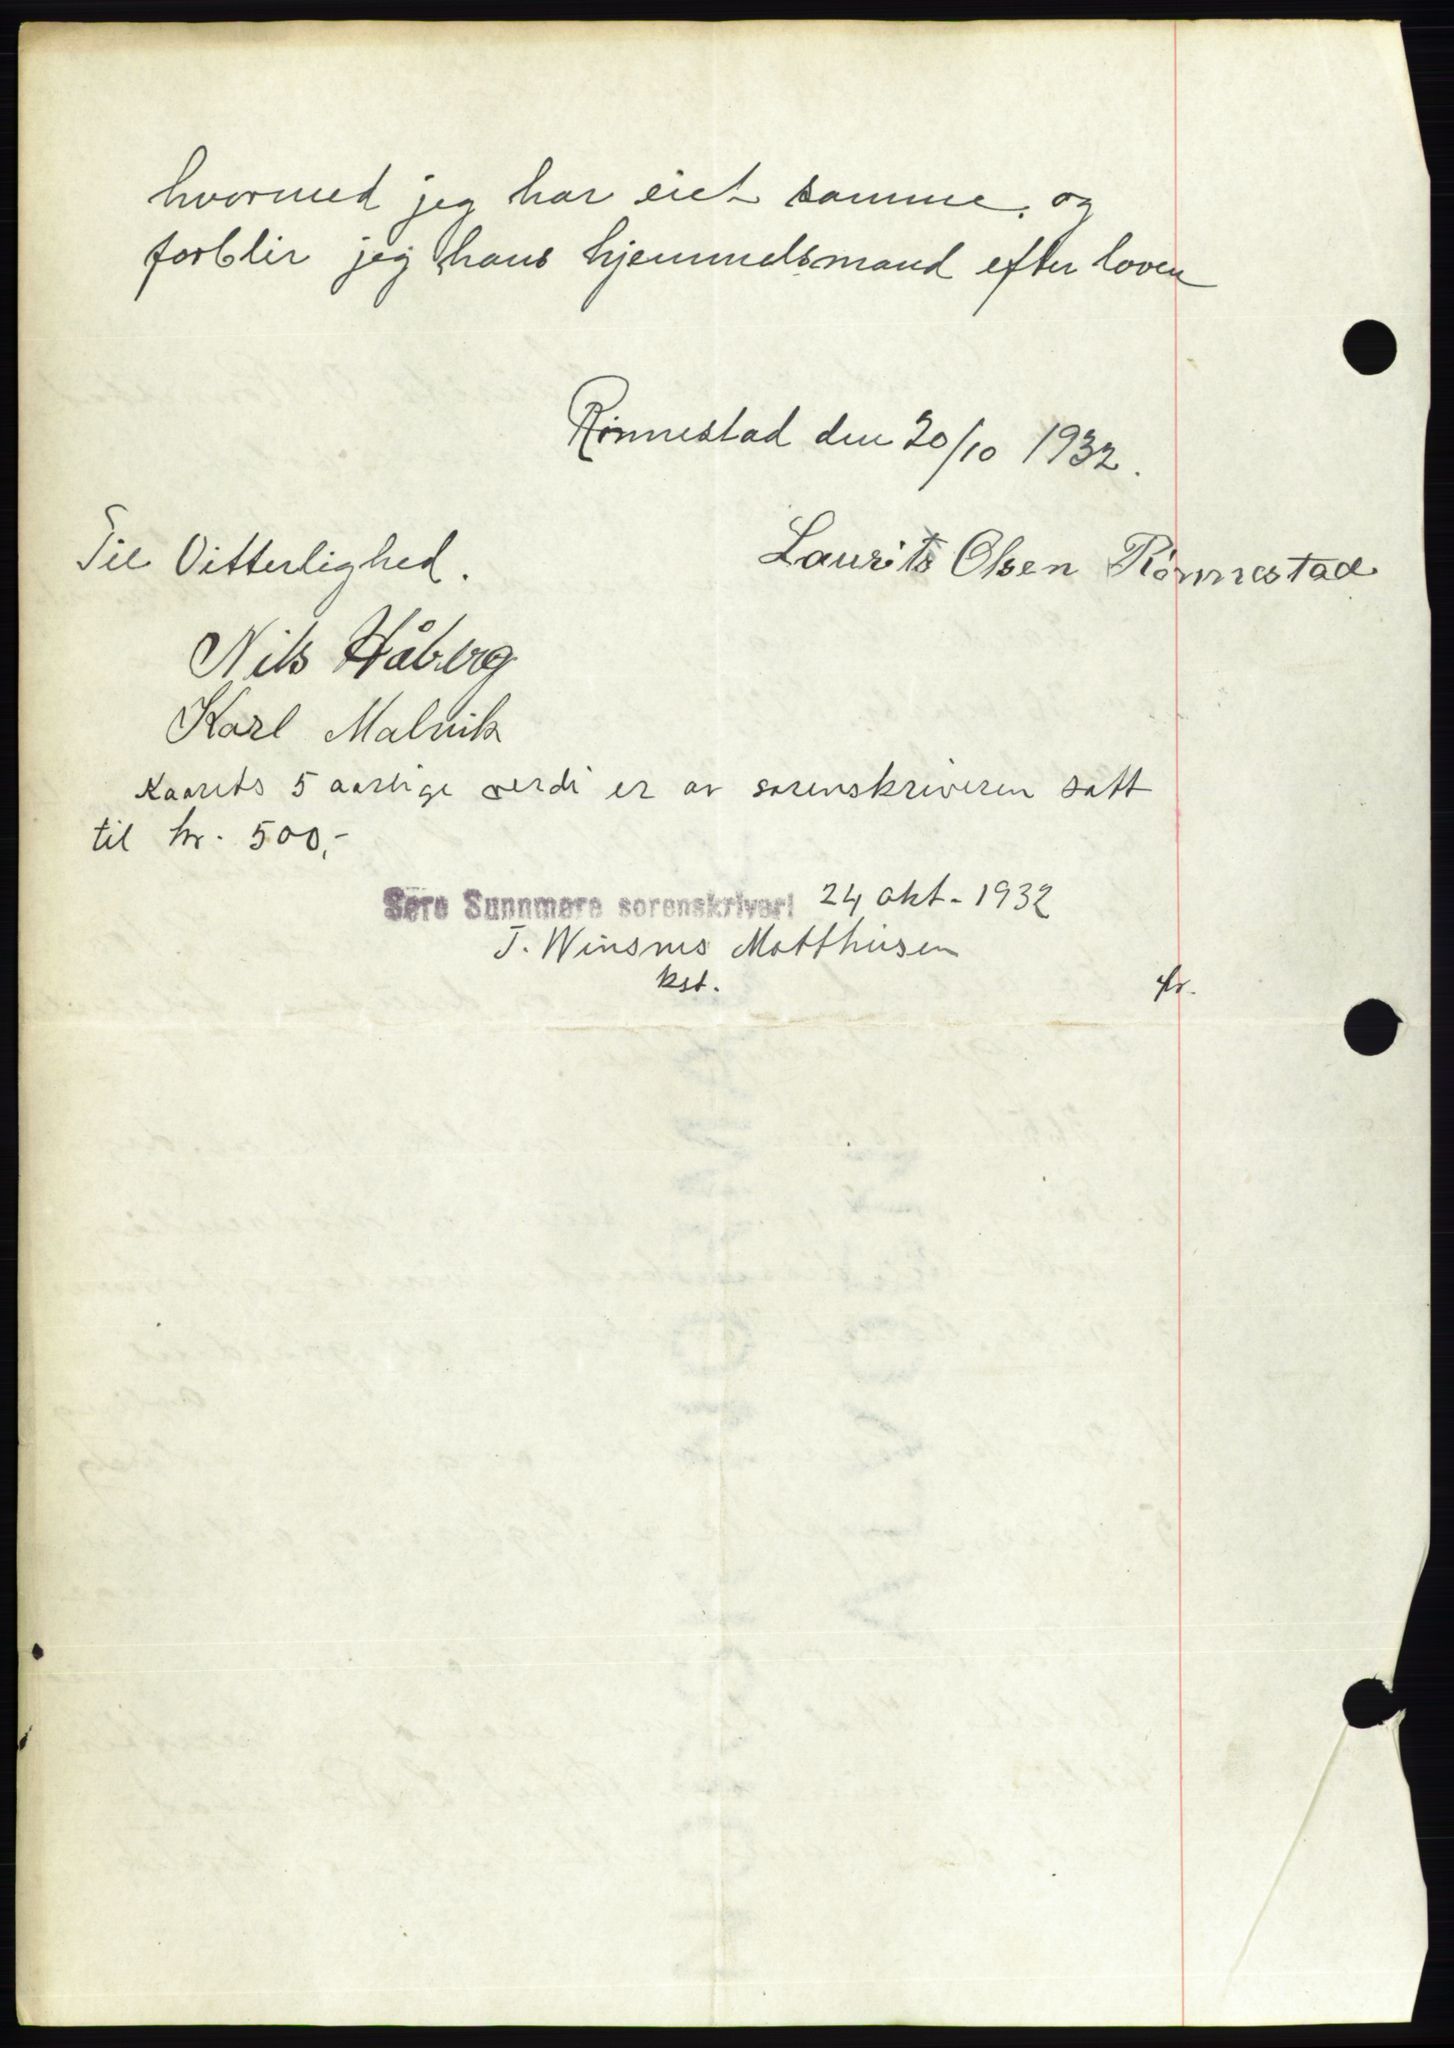 hvormed jeg har eiet samme. og
forblir jeg hans hjemmelsmand efter loven
Rönnestad den 20/10 1932.
Til Vitterlighed.
Laurits Olsen Rönnestad
Nils Håberg
Karl Malvik
Kaarets 5 aarlige verdi er av sorenskriveren satt
til kr. 500,-
Søre Sunnmøre sorenskriveri 24 okt. 1932
J. Winsnes Matthiesen
kst.